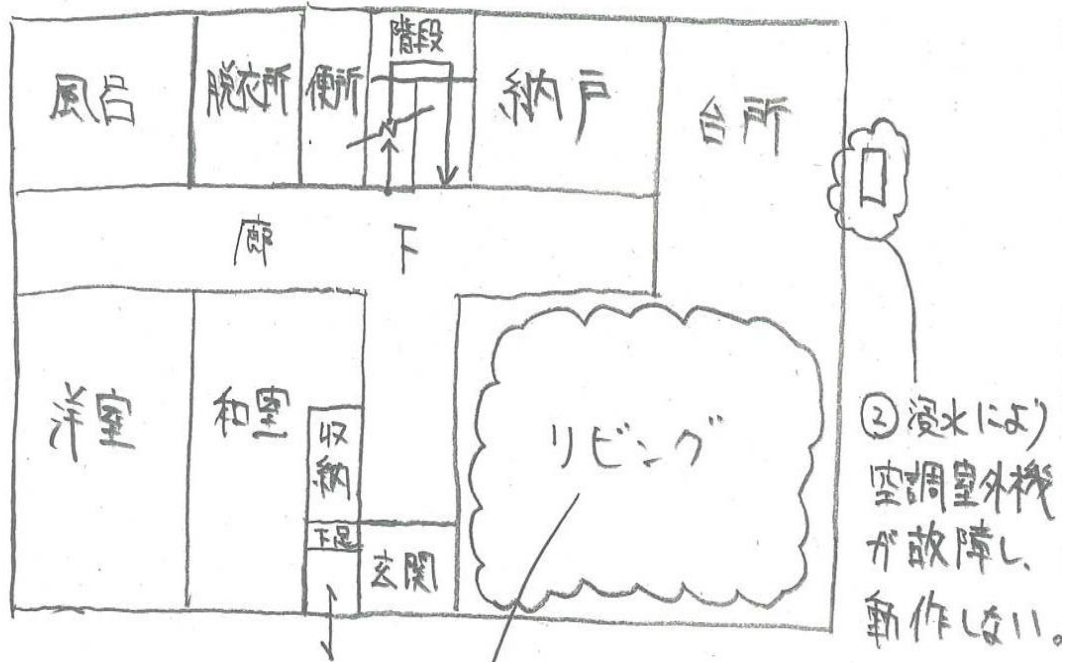 階段
風呂
脱衣所
便所
納戸
台所
廊下
洋室
和室
収納
下足
玄関
リビング
②浸水により
空調室外機
が故障し、
動作しない。